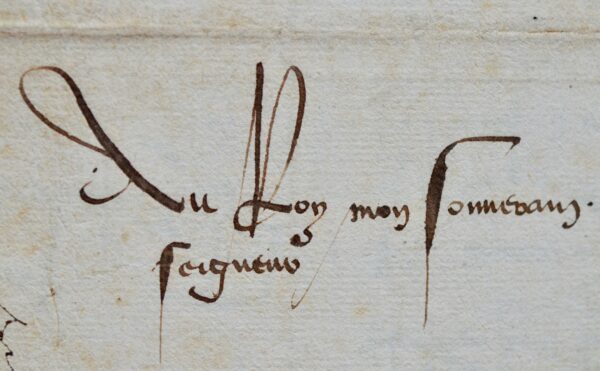 Au Roy mon souverain
seigneur